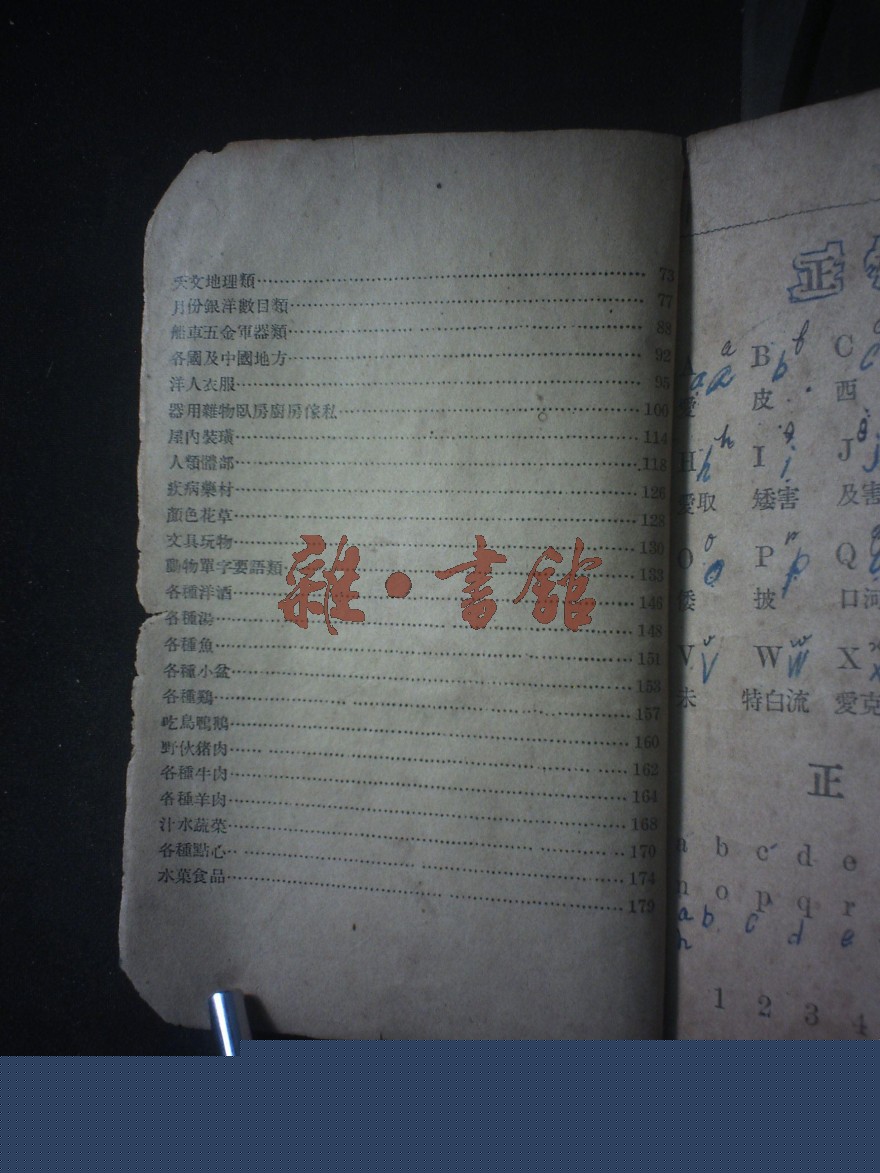 天文地理類 73
月份銀洋數目類 77
船車五金軍器類 88
各國及中國地方 92
洋人衣服 95
器用雜物臥房廚房傢私 106
屋內裝璜 114
人類體部 118
疾病藥材 126
顏色花草 128
文具玩物 130
動物單字要語類 133
各種洋酒 146
各種湯 148
各種魚 151
各種小盆 153
各種鷄 157
吃鳥鴨鵝 160
野伙豬肉 162
各種牛肉 164
各種羊肉 168
汁水蔬菜 170
各種點心 174
水菓食品 179
雜·書館
正
a b f
B C
a a b c
愛 皮 西
h
H I J
h i j
愛取 矮害 及害
o
O P Q
o p
倭 披 口河
v w
V W X
V W x
未 特白流 愛克
正
a b c d e
n o p q r
a b c d e
n
1 2 3 4